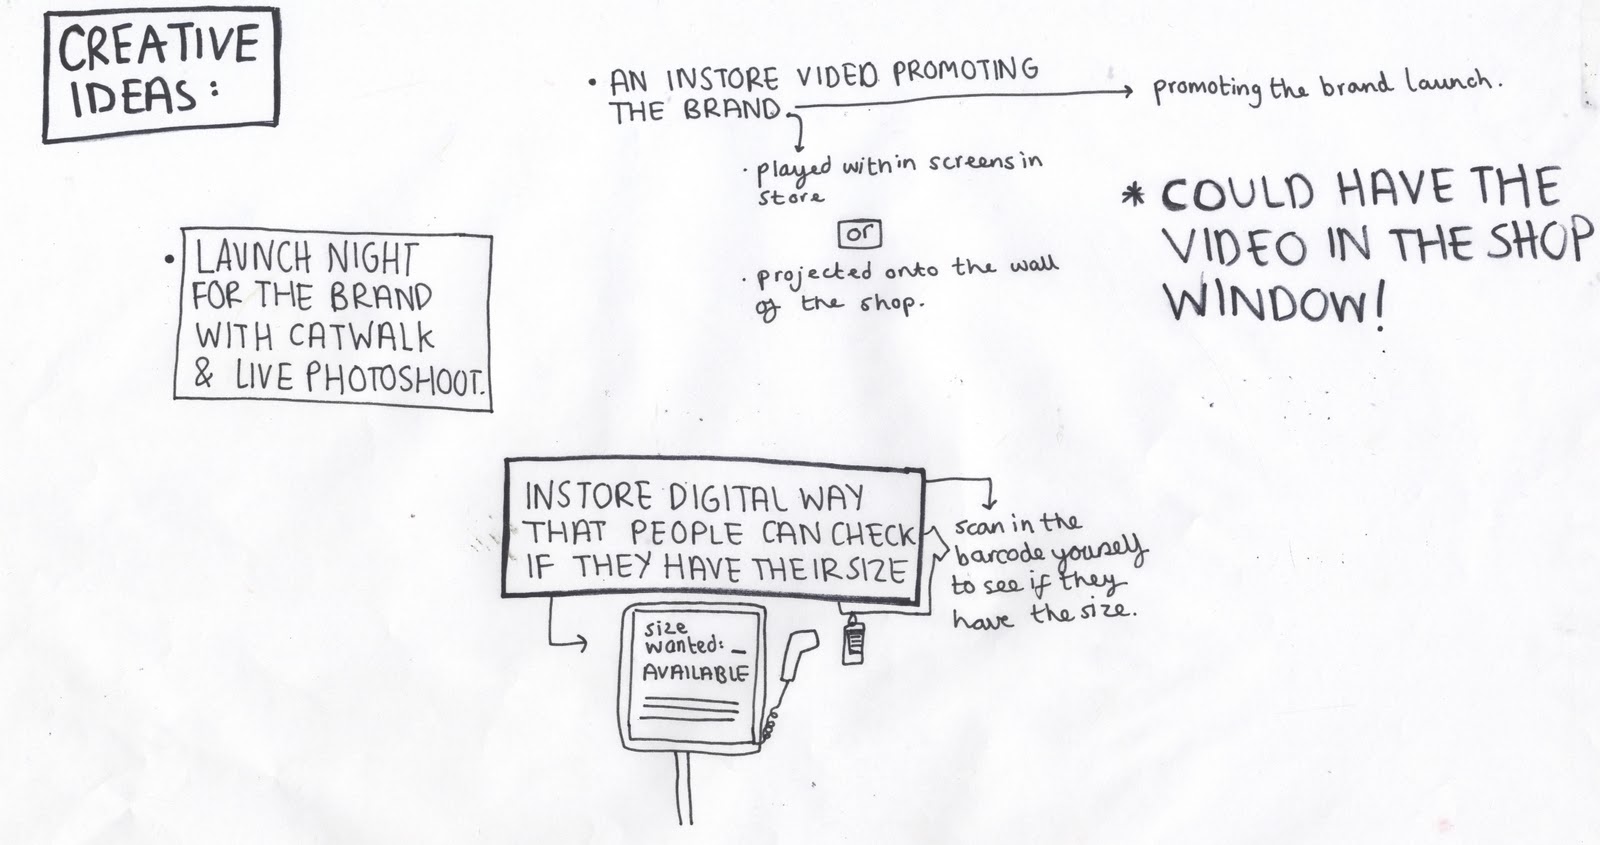 CREATIVE
IDEAS:
• AN INSTORE VIDEO PROMOTING
THE BRAND.
promoting the brand launch.
· played within screens in
store
or
· projected onto the wall
of the shop.
* COULD HAVE THE
VIDEO IN THE SHOP
WINDOW!
• LAUNCH NIGHT
FOR THE BRAND
WITH CATWALK
& LIVE PHOTOSHOOT.
INSTORE DIGITAL WAY
THAT PEOPLE CAN CHECK
IF THEY HAVE THEIR SIZE
scan in the
barcode youself
to see if they
have the size.
size
wanted: _
AVAILABLE